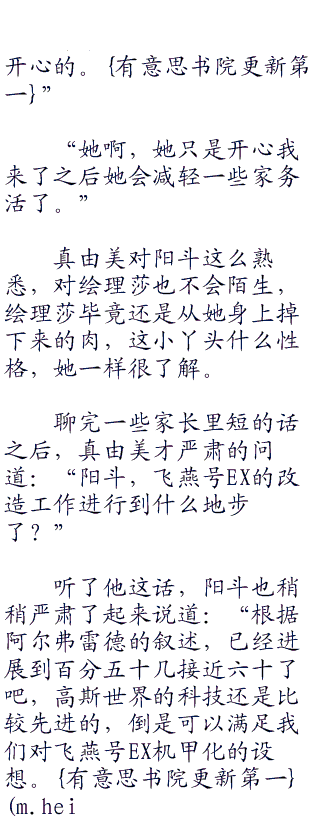 开心的。{有意思书院更新第
一}”
“她啊，她只是开心我
来了之后她会减轻一些家务
活了。”
真由美对阳斗这么熟
悉，对绘理莎也不会陌生，
绘理莎毕竟还是从她身上掉
下来的肉，这小丫头什么性
格，她一样很了解。
聊完一些家长里短的话
之后，真由美才严肃的问
道：“阳斗，飞燕号EX的改
造工作进行到什么地步
了？”
听了他这话，阳斗也稍
稍严肃了起来说道：“根据
阿尔弗雷德的叙述，已经进
展到百分五十几接近六十了
吧，高斯世界的科技还是比
较先进的，倒是可以满足我
们对飞燕号EX机甲化的设
想。{有意思书院更新第一}
(m.hei